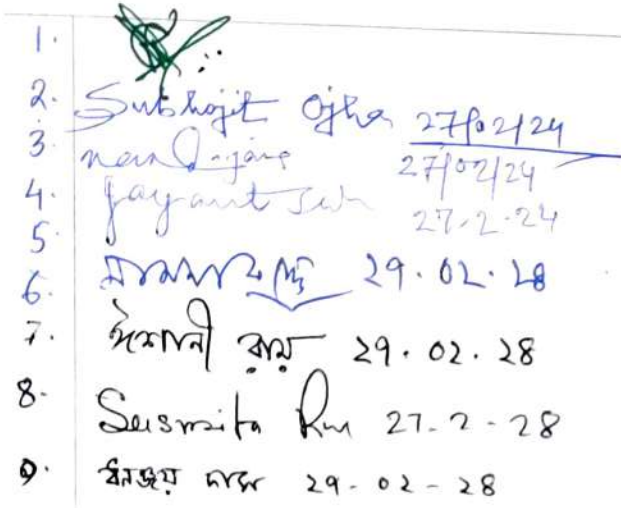 1.
2. Subhojit Ojha 27/02/24
3. 27/02/24
4. Jayant 27.2.24
5.
6. 29.02.28
7. ঈশানী রায় 29.02.28
8. Susmita 27-2-28
9. ধনঞ্জয় দাস 29-02-28